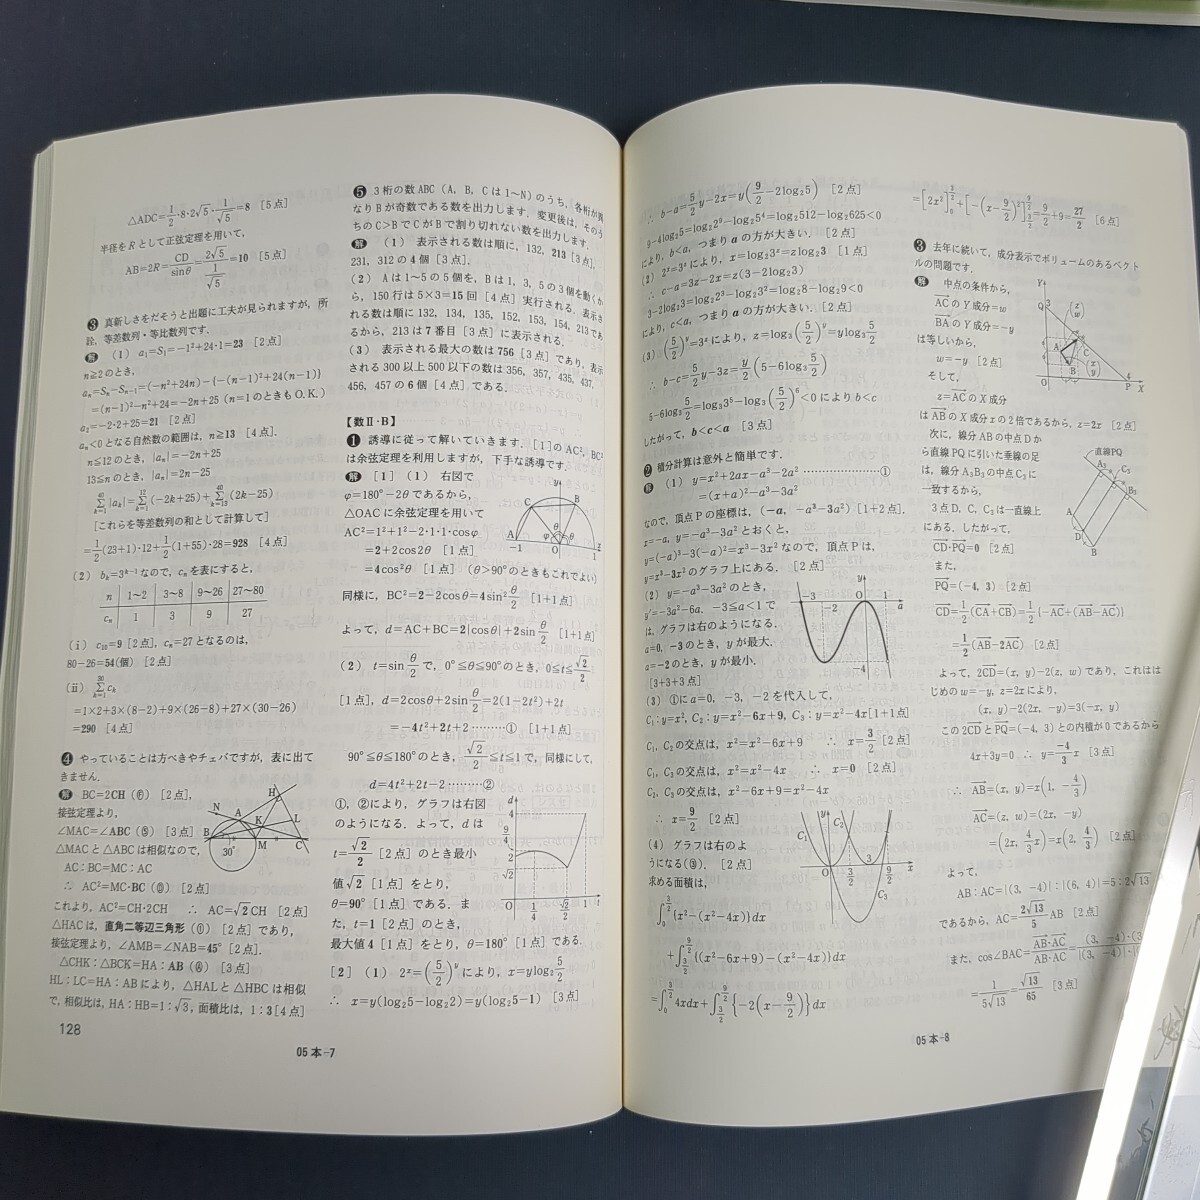 △ADC=1/2・8・2√5・1/√5=8 [5点]
半径をRとして正弦定理を用いて,
AB=2R=CD/sinθ=2√5/(1/√5)=10 [5点]
❸ 真新しさをだそうと出題に工夫が見られますが, 所
詮, 等差数列・等比数列です.
解 (1) a₁=S₁=−1²+24・1=23 [2点]
n≧2のとき,
aₙ=Sₙ−Sₙ₋₁=(−n²+24n)−{−(n−1)²+24(n−1)}
=(n−1)²−n²+24=−2n+25 (n=1のときもO.K.)
a₂=−2・2+25=21 [2点]
aₙ<0となる自然数の範囲は, n≧13 [4点].
n≦12のとき, |aₙ|=−2n+25
13≦nのとき, |aₙ|=2n−25
Σ[k=1→40]|aₖ|=Σ[k=1→12](−2k+25)+Σ[k=13→40](2k−25)
[これらを等差数列の和として計算して]
=1/2(23+1)・12+1/2(1+55)・28=928 [4点]
(2) bₖ=3ᵏ⁻¹なので, cₙを表にすると,
n 1~2 3~8 9~26 27~80
cₙ 1 3 9 27
(i) c₁₀=9 [2点], cₙ=27となるのは,
80−26=54(個) [2点]
(ii) Σ[k=1→30]cₖ
=1×2+3×(8−2)+9×(26−8)+27×(30−26)
=290 [4点]
❹ やっていることは方べきやチェバですが, 表に出て
きません.
解 BC=2CH (㋕) [2点],
接弦定理より,
∠MAC=∠ABC (⑤) [3点]
△MACと△ABCは相似なので,
AC:BC=MC:AC
∴ AC²=MC・BC (⓪) [2点]
これより, AC²=CH・2CH ∴ AC=√2CH [2点]
△HACは, 直角二等辺三角形 (①) [2点] であり,
接弦定理より, ∠AMB=∠NAB=45° [2点].
△CHK:△BCK=HA:AB (④) [3点]
HL:LC=HA:ABにより, △HALと△HBCは相似
で, 相似比は, HA:HB=1:√3, 面積比は, 1:3 [4点]
N A H K L B M C 30°
128
05本-7
❺ 3桁の数ABC (A, B, Cは1~N) のうち, 各桁が異
なりBが奇数である数を出力します. 変更後は, そのう
ちのC>BでCがBで割り切れない数を出力します.
解 (1) 表示される数は順に, 132, 213 [3点],
231, 312の4個 [3点].
(2) Aは1~5の5個を, Bは1, 3, 5の3個を動くか
ら, 150行は5×3=15回 [4点] 実行される. 表示さ
れる数は順に132, 134, 135, 152, 153, 154, 213であ
るから, 213は7番目 [3点] に表示される.
(3) 表示される最大の数は756 [3点] であり, 表示
される300以上500以下の数は356, 357, 435, 437,
456, 457の6個 [4点] である.
【数Ⅱ・B】
❶ 誘導に従って解いていきます. [1]のAC², BC²
は余弦定理を利用しますが, 下手な誘導です.
解 [1] (1) 右図で
φ=180°−2θであるから,
△OACに余弦定理を用いて
AC²=1²+1²−2・1・1・cosφ
=2+2cos2θ [1点]
=4cos²θ [1点] (θ>90°のときもこれでよい)
同様に, BC²=2−2cosθ=4sin²θ/2 [1+1点]
よって, d=AC+BC=2|cosθ|+2sinθ/2 [1+1点]
(2) t=sinθ/2で, 0°≦θ≦90°のとき, 0≦t≦√2/2
[1点], d=2cosθ+2sinθ/2=2(1−2t²)+2t
=−4t²+2t+2 ………① [1+1点]
90°≦θ≦180°のとき, √2/2≦t≦1で, 同様にして,
d=4t²+2t−2 ………②
①, ②により, グラフは右図
のようになる. よって, dは
t=√2/2 [2点] のとき最小
値√2 [1点] をとり,
θ=90° [1点] である. ま
た, t=1 [2点] のとき,
最大値4 [1点] をとり, θ=180° [1点] である.
[2] (1) 2ˣ=(5/2)ʸにより, x=ylog₂5/2
∴ x=y(log₂5−log₂2)=y(log₂5−1) [3点]
C y B A φ θ θ −1 O 1 x
d 4 9/4 2 √2 O 1/4 √2/2 1 t
∴ b−a=5/2y−2x=y(9/2−2log₂5) [2点]
9−4log₂5=log₂2⁹−log₂5⁴=log₂512−log₂625<0
により, b<a, つまりaの方が大きい. [2点]
(2) 2ˣ=3ᶻにより, x=log₂3ᶻ=zlog₂3 [1点]
∴ c−a=3z−2x=z(3−2log₂3)
3−2log₂3=log₂2³−log₂3²=log₂8−log₂9<0
により, c<a, つまりaの方が大きい. [2点]
(3) (5/2)ʸ=3ᶻにより, z=log₃(5/2)ʸ=ylog₃5/2
∴ b−c=5/2y−3z=y/2(5−6log₃5/2)
5−6log₃5/2=log₃3⁵−log₃(5/2)⁶<0によりb<c
したがって, b<c<a [3点]
❷ 積分計算は意外と簡単です.
解 (1) y=x²+2ax−a³−2a² ………………①
=(x+a)²−a³−3a²
なので, 頂点Pの座標は, (−a, −a³−3a²) [1+2点].
x=−a, y=−a³−3a²とおくと,
y=(−a)³−3(−a)²=x³−3x²なので, 頂点Pは,
y=x³−3x²のグラフ上にある. [2点]
(2) y=−a³−3a²のとき,
y′=−3a²−6a. −3≦a<1で
は, グラフは右のようになる.
a=0, −3のとき, yが最大,
a=−2のとき, yが最小.
[3+3+3点]
(3) ①にa=0, −3, −2を代入して,
C₁:y=x², C₂:y=x²−6x+9, C₃:y=x²−4x [1+4点]
C₁, C₂の交点は, x²=x²−6x+9 ∴ x=3/2 [2点]
C₁, C₃の交点は, x²=x²−4x ∴ x=0 [2点]
C₂, C₃の交点は, x²−6x+9=x²−4x
∴ x=9/2 [2点]
(4) グラフは右のよ
うになる(③). [2点]
求める面積は,
∫[0→3/2]{x²−(x²−4x)}dx
+∫[3/2→9/2]{(x²−6x+9)−(x²−4x)}dx
=∫[0→3/2]4xdx+∫[3/2→9/2]{−2(x−9/2)}dx
y −3 −2 0 1 a −4
C₁ y C₂ O 3/2 3 9/2 x C₃
=[2x²][0→3/2]+[−(x−9/2)²][3/2→9/2]=9/2+9=27/2 [6点]
❸ 去年に続いて, 成分表示でボリュームのあるベクト
ルの問題です.
解 中点の条件から,
ACのY成分=w
BAのY成分=−y
は等しいから,
w=−y [2点]
そして,
z=ACのX成分
はABのX成分xの2倍であるから, z=2x [2点]
次に, 線分ABの中点Dか
ら直線PQに引いた垂線の足
は, 線分A₃B₃の中点C₃に
一致するから,
3点D, C, C₃は一直線上
にある. したがって,
CD・PQ=0 [2点]
また,
PQ=(−4, 3) [2点]
CD=1/2(CA+CB)=1/2{−AC+(AB−AC)}
=1/2(AB−2AC) [2点]
よって, 2CD=(x, y)−2(z, w)であり, これはは
じめのw=−y, z=2xにより,
(x, y)−2(2x, −y)=3(−x, y)
この2CDとPQ=(−4, 3)との内積が0であるから
4x+3y=0 ∴ y=−4/3x [3点]
∴ AB=(x, y)=x(1, −4/3)
AC=(z, w)=(2x, −y)
=(2x, 4/3x)=x(2, 4/3) [2点]
よって,
AB:AC=|(3, −4)|:|(6, 4)|=5:2√13
であるから, AC=2√13/5AB [2点]
また, cos∠BAC=AB・AC/AB・AC=(3, −4)・(3
=1/5√13=√13/65 [3点]
Y Q 3 (z/w) A C B (x/y) O 4 P X
直線PQ A₃ C₃ B₃ A C D B
05本-8